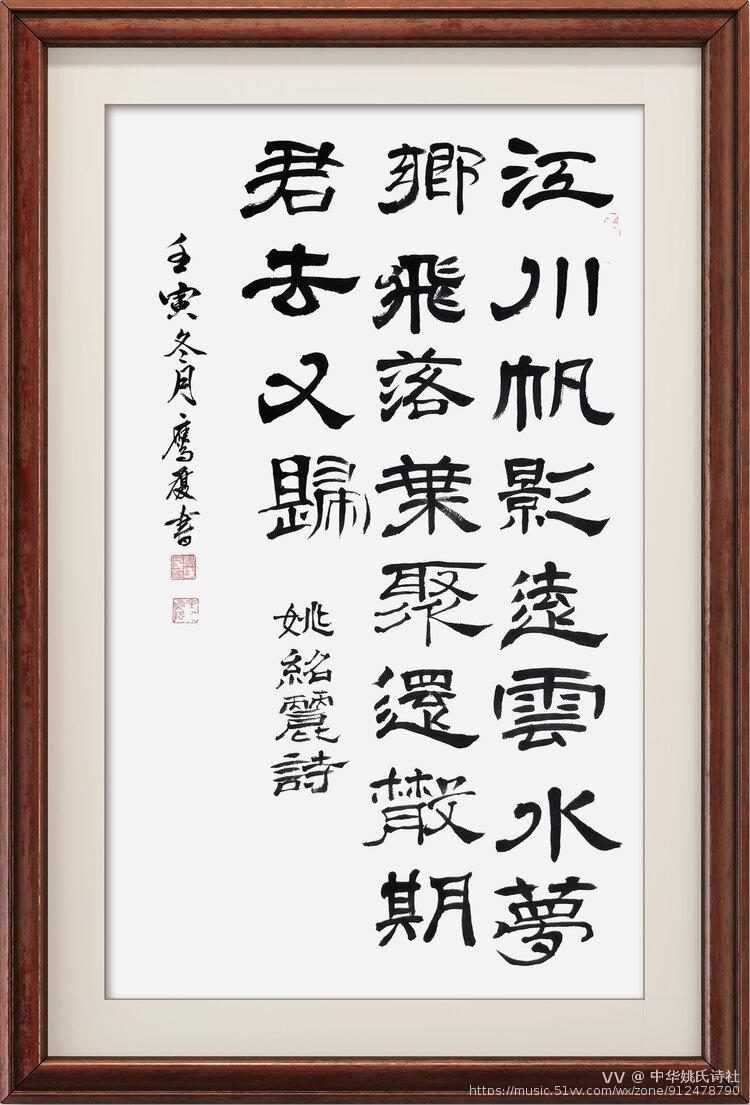 江川帆影遠雲水夢
鄉飛落葉聚還散期
君去又歸
姚紹麗詩
壬寅冬月鹰夏書
VV @ 中华姚氏诗社
https://music.51vv.com/wx/zone/912478790